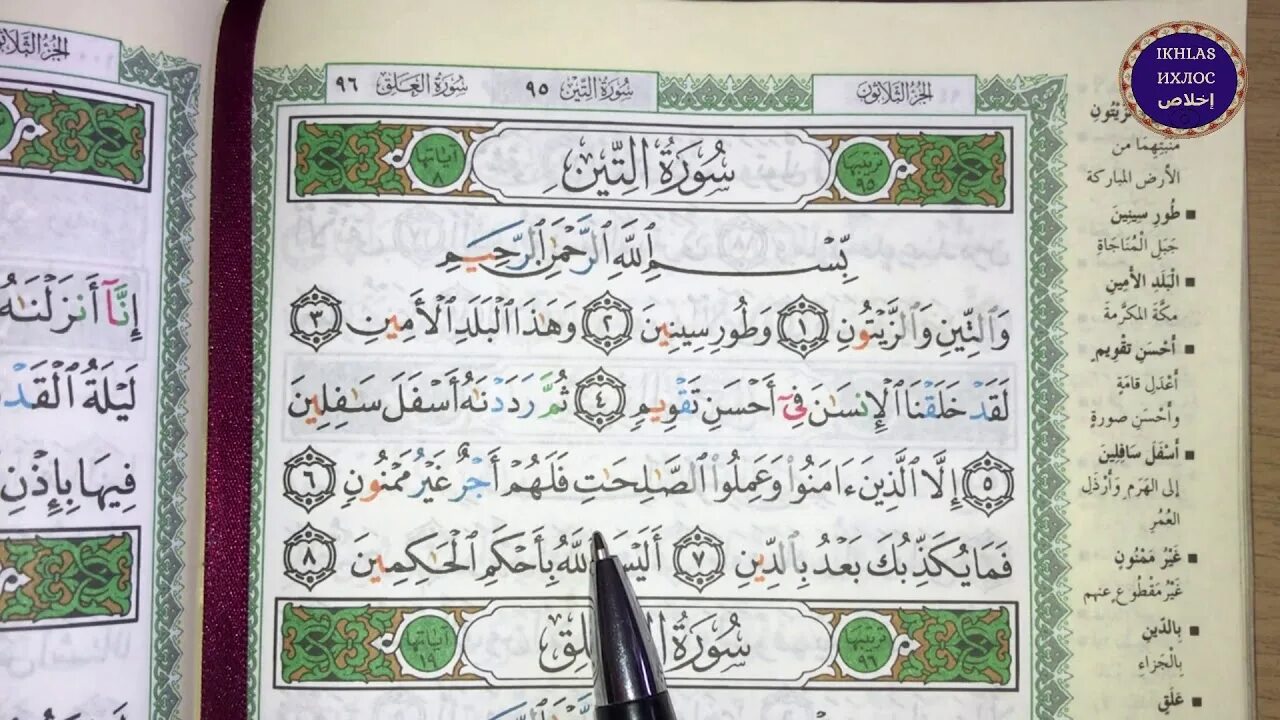 الجزء الثلاثون
سورة التين ٩٥
سورة العلق ٩٦
IKHLAS
ИХЛОС
إخلاص
ترتيبها ٩٥
سُورَةُ التِّينِ
آياتها ٨
بِسْمِ اللَّهِ الرَّحْمَٰنِ الرَّحِيمِ
وَالتِّينِ وَالزَّيْتُونِ ١ وَطُورِ سِينِينَ ٢ وَهَٰذَا الْبَلَدِ الْأَمِينِ ٣
لَقَدْ خَلَقْنَا الْإِنسَٰنَ فِىٓ أَحْسَنِ تَقْوِيمٍ ٤ ثُمَّ رَدَدْنَٰهُ أَسْفَلَ سَٰفِلِينَ
٥ إِلَّا الَّذِينَ ءَامَنُوا۟ وَعَمِلُوا۟ الصَّٰلِحَٰتِ فَلَهُمْ أَجْرٌ غَيْرُ مَمْنُونٍ ٦
فَمَا يُكَذِّبُكَ بَعْدُ بِالدِّينِ ٧ أَلَيْسَ اللَّهُ بِأَحْكَمِ الْحَٰكِمِينَ ٨
ترتيبها ٩٦
سُورَةُ
آياتها ١٩
مَنْبِتِهِمَا من
الأرض المباركة
طُورِ سِينِينَ
جَبَلِ الْمُنَاجَاةِ
الْبَلَدِ الأَمِينِ
مَكَّةَ المُكَرَّمَةِ
أَحْسَنِ تَقْوِيمٍ
أَعْدَلِ قَامَةٍ
وأَحْسَنِ صورةٍ
أَسْفَلَ سَافِلِينَ
إلى الهَرَمِ وَأَرْذَلِ
العُمُرِ
غَيْرُ مَمْنُونٍ
غَيْرُ مَقْطُوعٍ عنهم
بِالدِّينِ
بِالْجَزَاءِ
عَلَقٍ
إِنَّآ أَنزَلْنَٰهُ
لَيْلَةُ
فِيهَا بِإِذْنِ